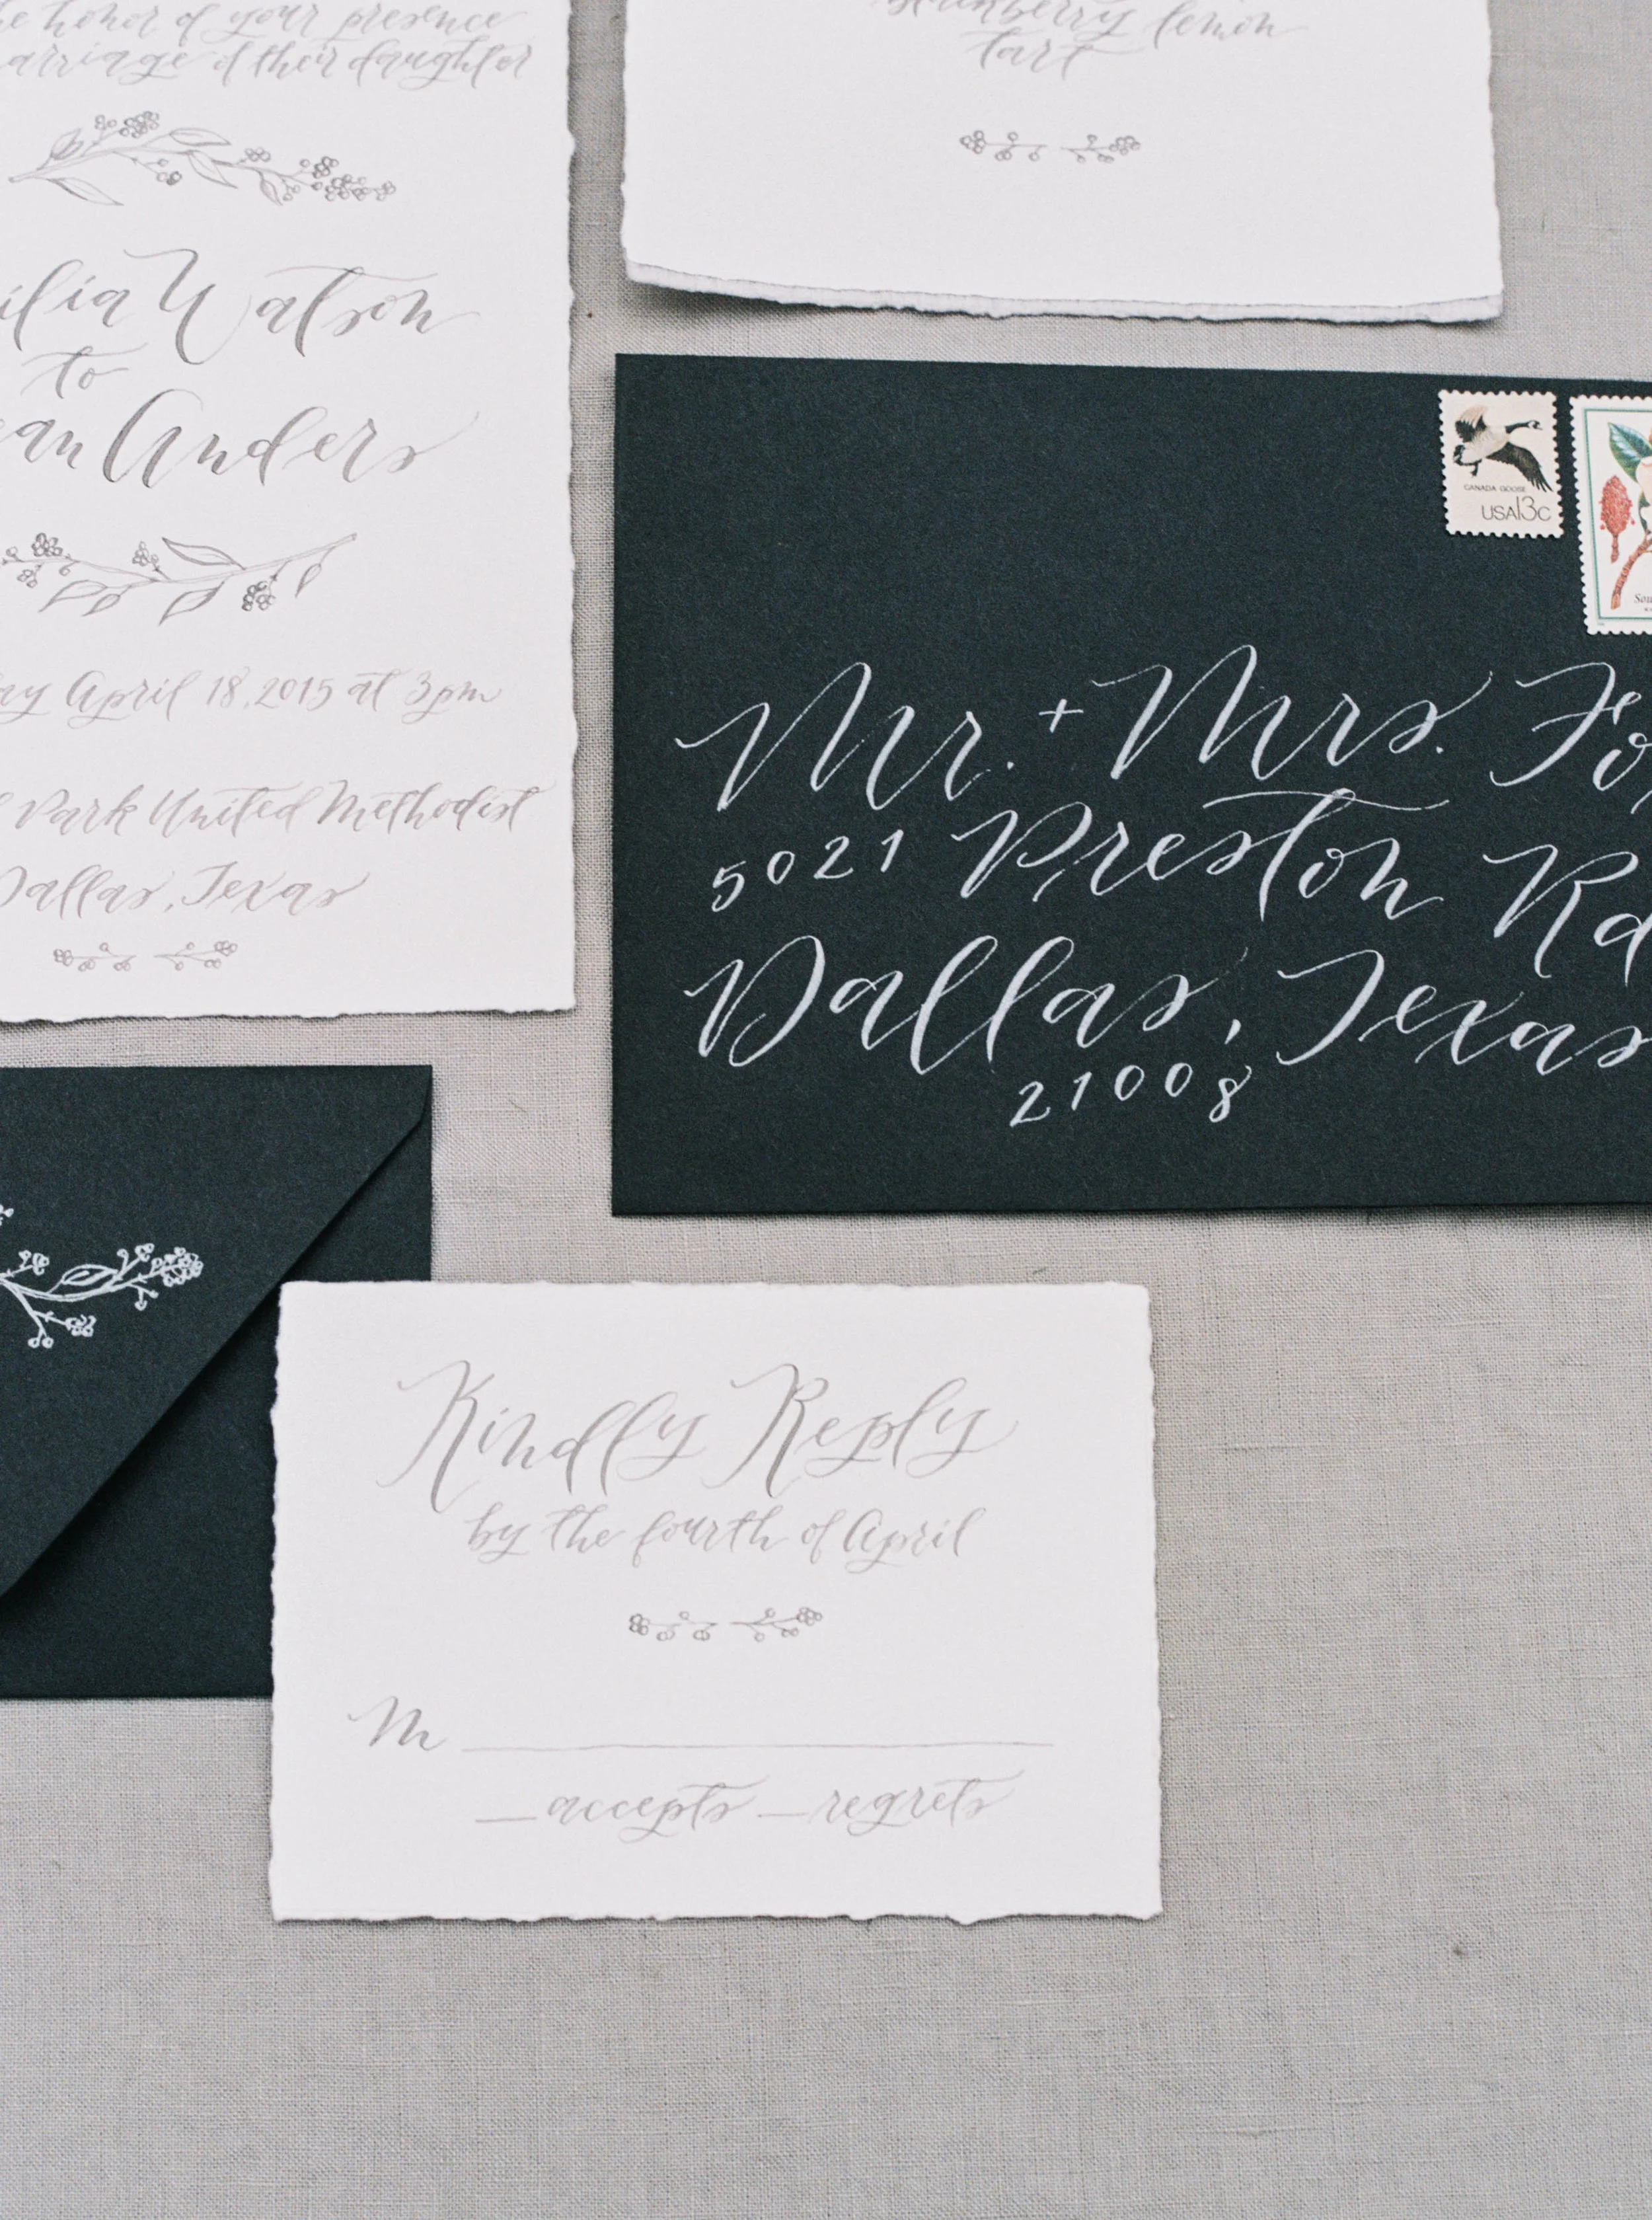 honor of your presence
of their daughter
Watson
to
Anders
April 18, 2015 at 3pm
Park United Methodist
Dallas, Texas
lemon
tart
CANADA GOOSE
USA 13c
Mr. + Mrs.
5021 Preston Rd
Dallas, Texas
21008
Kindly Reply
by the fourth of April
M
accepts regrets